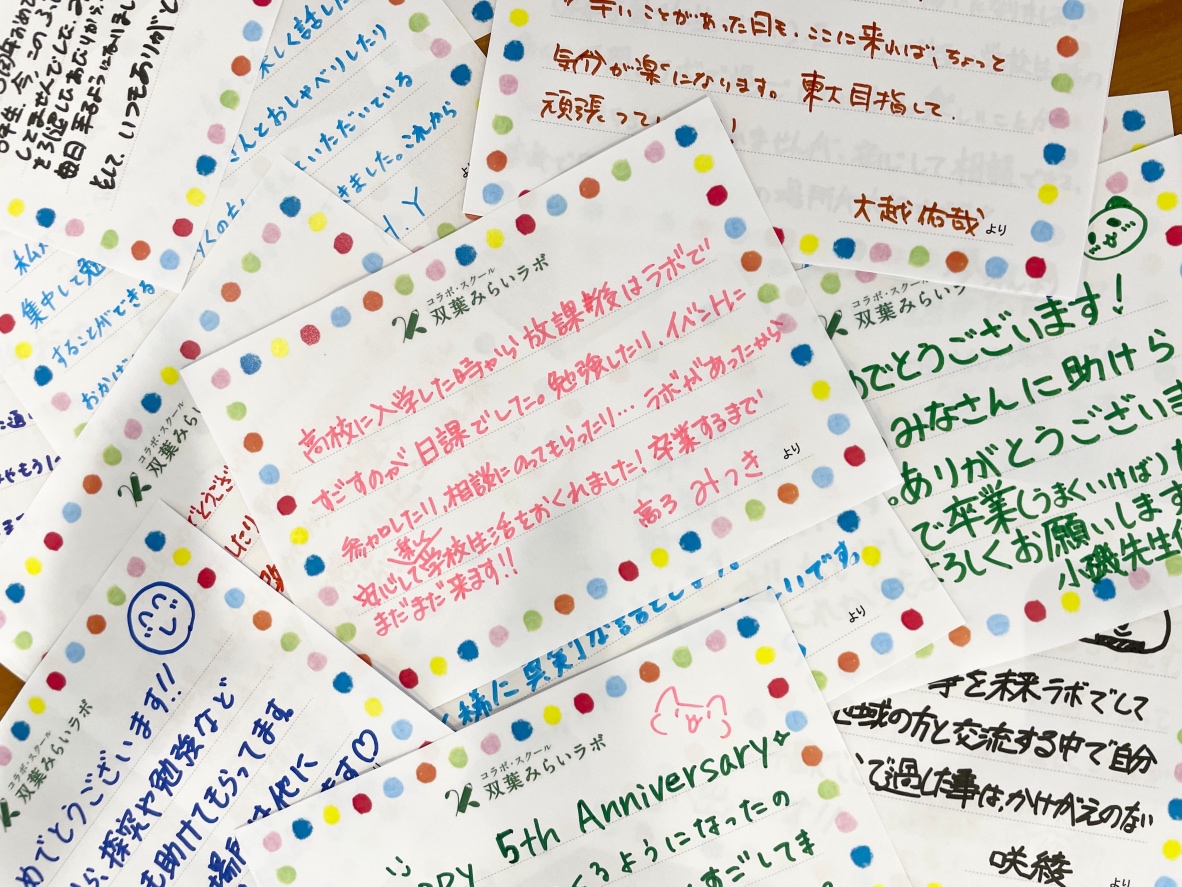 毎日来るようになりまし
として、いつもありがと
楽しく話した
さんとおしゃべりしたり
いただいている
きました。これから
Y
より
辛いことがあった日も、ここに来れば、ちょっと
気分が楽になります。東大目指して、
頑張って
大越佑哉 より
集中して勉
することができる
おかげ
コラボ・スクール
双葉みらいラボ
高校に入学した時から放課後はラボで
すごすのが日課でした。勉強したり、イベントに
参加したり、相談にのってもらったり…ラボがあったから
安心して楽しく学校生活をおくれました!卒業するまで
まだまだ来ます!!
高ろ みつき より
双葉みらいラ
めでとうございます!
みなさんに助けら
ありがとうございま
で卒業(うまくいけば)
よろしくお願いします
小磯先生
双葉みら
いです。
より
コラボ・スクール
双葉みらいラボ
めでとうございます!!
探究や勉強など
も助けてもらってます
他に
ます♡
コラボ・スクール
双葉みらいラボ
5th Anniversary
くるようになったの
すごしてま
を未来ラボでして
地域の方と交流する中で自分
で過した事は、かけがえのない
咲綾 より